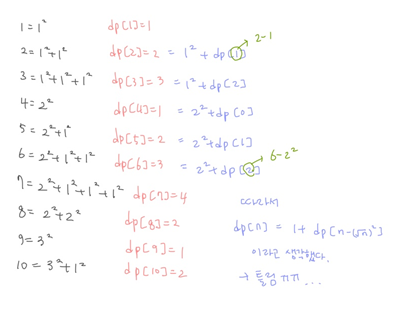 1 = 1² dp[1]=1
2 = 1²+1² dp[2]=2 = 1²+dp[1] → 2-1
3 = 1²+1²+1² dp[3]=3 = 1²+dp[2]
4 = 2² dp[4]=1 = 2²+dp[0]
5 = 2²+1² dp[5]=2 = 2²+dp[1]
6 = 2²+1²+1² dp[6]=3 = 2²+dp[2] → 6-2²
7 = 2²+1²+1²+1² dp[7]=4
8 = 2²+2² dp[8]=2
9 = 3² dp[9]=1
10 = 3²+1² dp[10]=2
따라서
dp[n] = 1 + dp[n-(√n)²]
이라고 생각했다.
→ 틀림 ㅠㅠ...